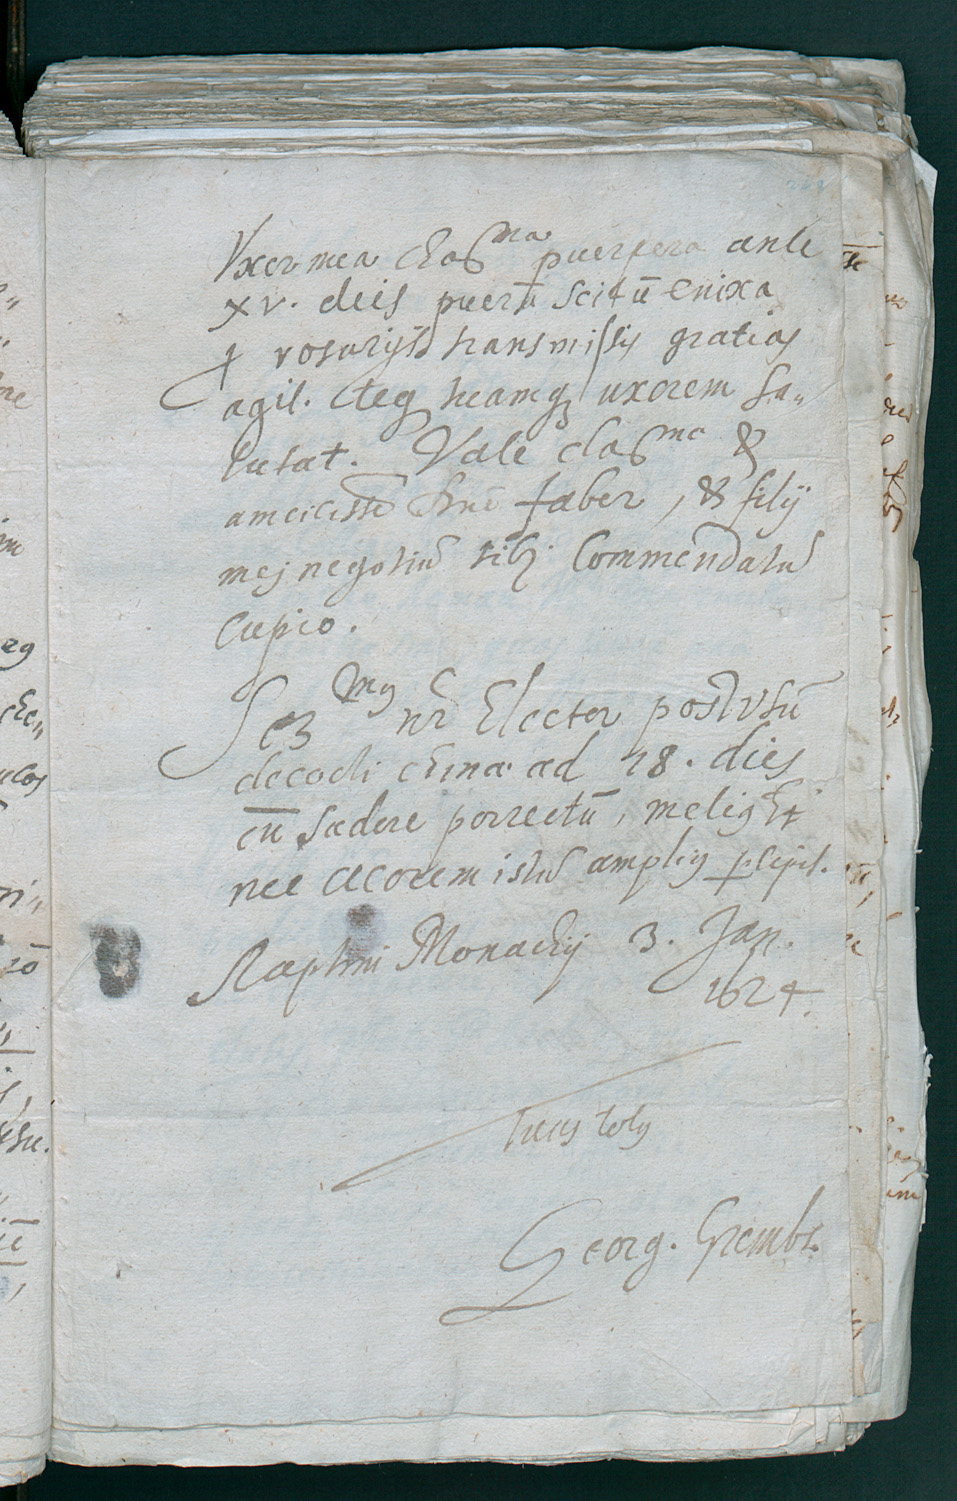 Uxor mea char^ma puerpera ante
xv. dies puerū scitū enixa
p rosarijs transmissis gratias
agit. teq tuamq uxorem sa„
lutat. Vale clar^me &
amicissē Dn̄e faber, & filij
mej negotiū tibi Commendatū
Cupio.
Ser^mus nr̄ Elector post usū
decocti chinae ad 18. dies
cū sudore porrectū, melius h̄t
nec acorem istū amplius pcipit.
Raptim Monachij 3. Jan.
1624.
Tuus totus
Georg. Grembs.